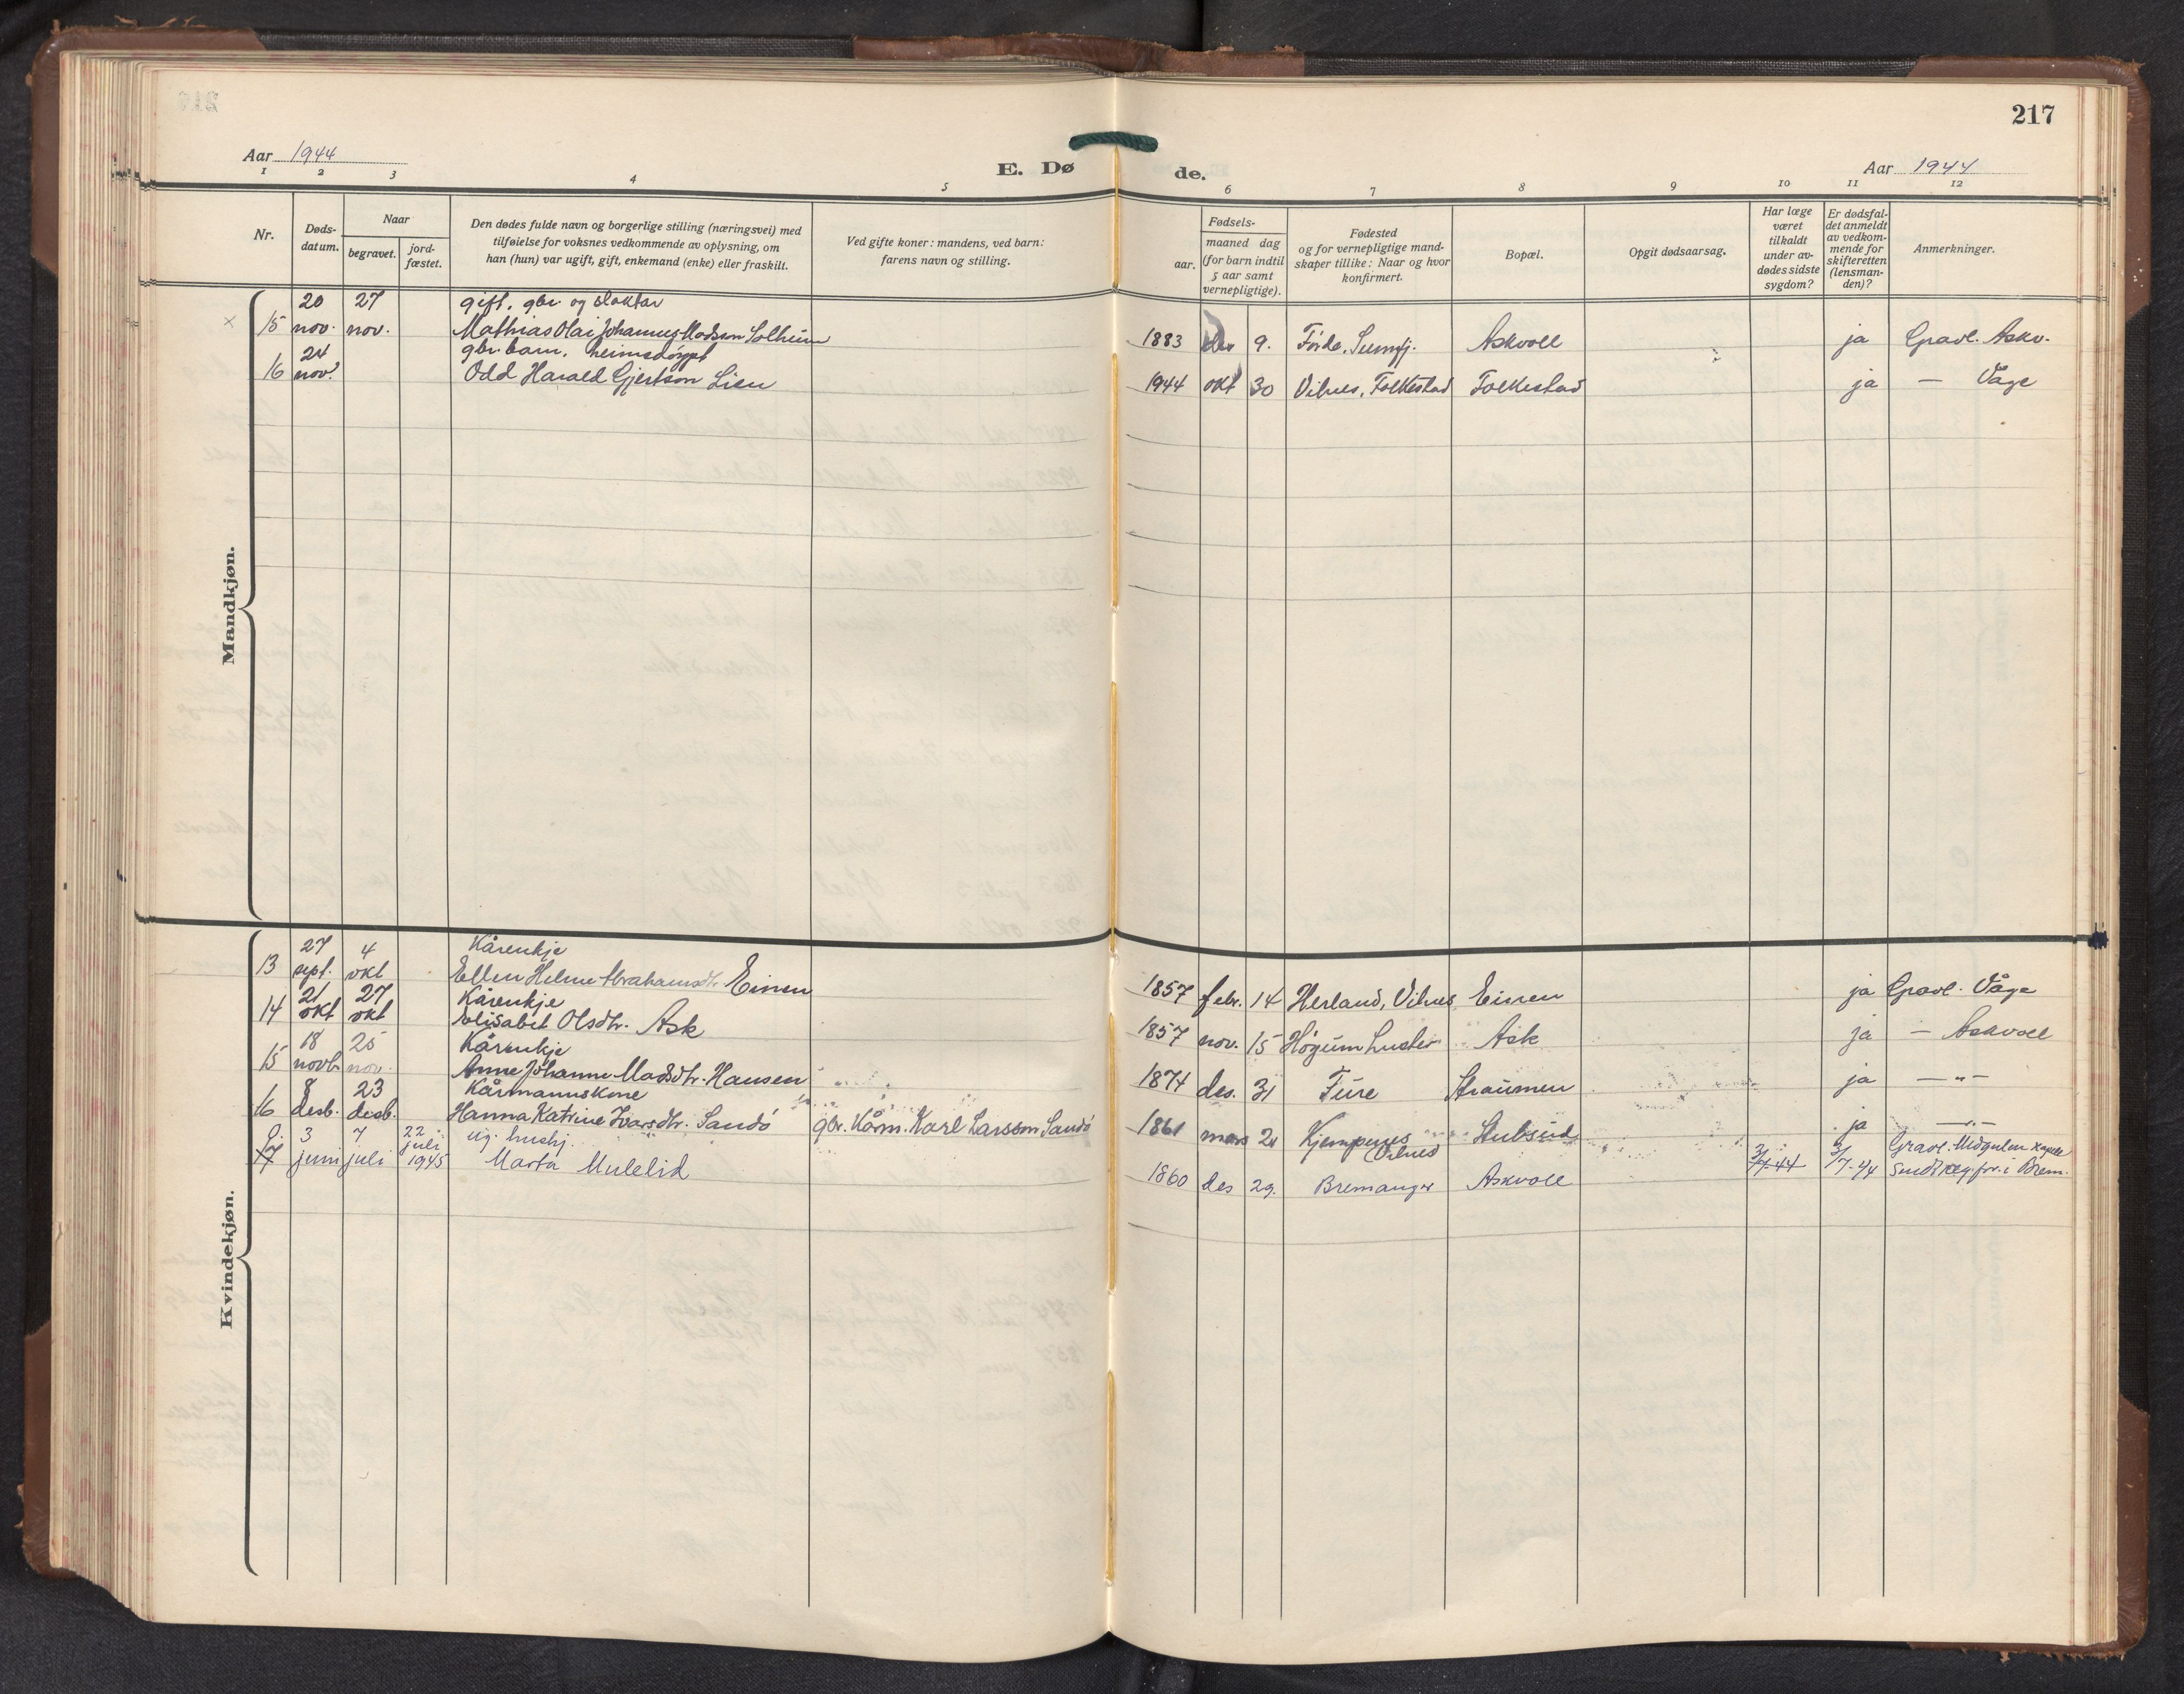 217
Aar 1944
E. Dø
de.
Aar 1944
1 2 3 4 5 6 7 8 9 10 11 12
Nr.
Døds-
datum.
Naar
begravet.
jord-
fæstet.
Den dødes fulde navn og borgerlige stilling (næringsvei) med
tilføielse for voksnes vedkommende av oplysning, om
han (hun) var ugift, gift, enkemand (enke) eller fraskilt.
Ved gifte koner: mandens, ved barn:
farens navn og stilling.
Fødsels-
aar.
maaned dag
(for barn indtil
5 aar samt
vernepligtige).
Fødested
og for vernepligtige mand-
skaper tillike: Naar og hvor
konfirmert.
Bopæl.
Opgit dødsaarsag.
Har læge
været
tilkaldt
under av-
dødes sidste
sygdom?
Er dødsfal-
det anmeldt
av vedkom-
mende for
skifteretten
(lensman-
den)?
Anmerkninger.
Mandkjøn.
20 27 gift. gbr. og slaktar
15 nov. nov. Mathias Olai Johannes Madsen Solheim 1883 9. Førde, Sunnfj. Askvoll ja Gravl. Askv.
24 gbr. barn, heimedøypt
16 nov. Odd Harald Gjertson Lien 1944 okt 30 Vilnes, Folkestad Folkestad ja — Våge
Kvindekjøn.
27 4 Kårenkje
13 sept. okt Ellen Helene Abrahamsdtr. Einen 1857 febr. 14 Herland, Vilnes Einen ja Gravl. Våge
21 27 Kårenkje
14 okt okt Elisabet Olsdtr. Ask 1857 nov. 15 Høgum Luster Ask ja — Askvoll
18 25 Kårenkje
15 novb. nov. Anne Johanne Madsdtr. Hansen 1874 des. 31 Fure Straumen ja — „ —
8 23 Kårmannskone
16 desb. desb. Hanna Katrine Ivarsdtr. Sandø gbr. Kårm. Karl Larsson Sandø 1861 mars 24 Kjempenes Vilnes Stubseid ja — „ —
3 7 22 juli 1945 ug. hushj.
17 juni juli Marta Mulelid 1860 des 29. Bremanger Askvoll 3/7-44 3/7-44 Gravl. Midgulen kapell
Sendt reg. før. i Brem.